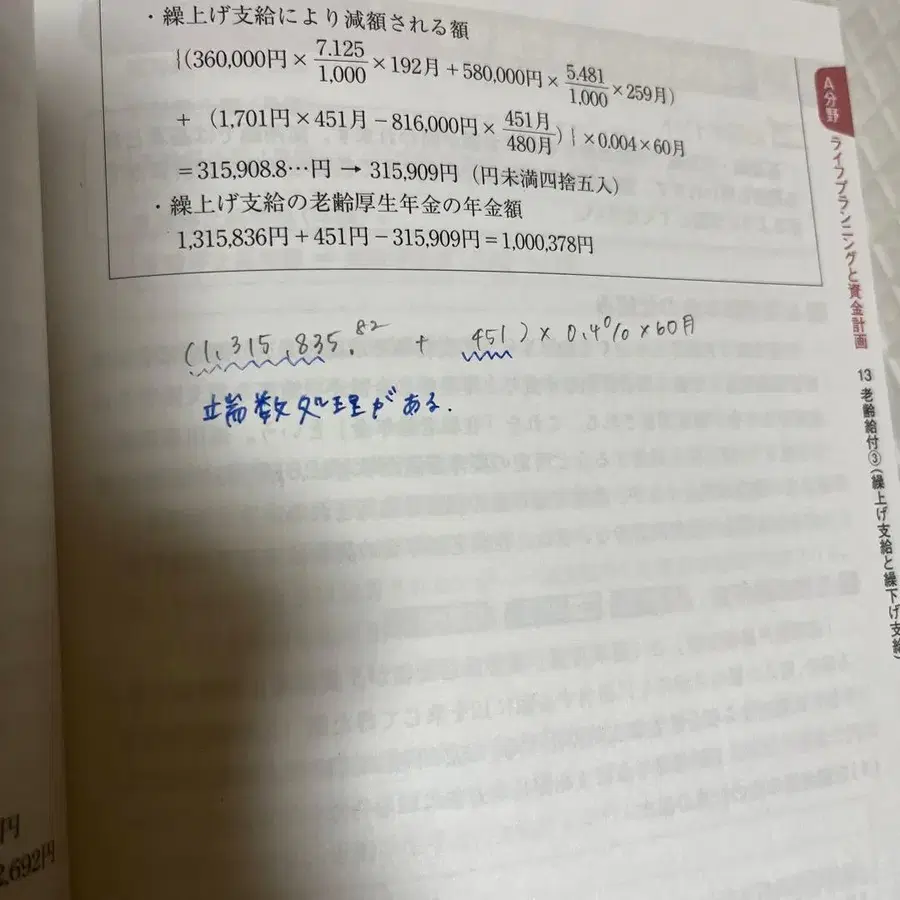 ・繰上げ支給により減額される額
{(360,000円×7.125/1,000×192月+580,000円×5.481/1,000×259月)
+ (1,701円×451月-816,000円×451月/480月)}×0.004×60月
=315,908.8…円 → 315,909円 (円未満四捨五入)
・繰上げ支給の老齢厚生年金の年金額
1,315,836円+451円-315,909円=1,000,378円
(1,315,835.82 + 451)×0.4%×60月
端数処理がある.
A分野
ライフプランニングと資金計画
13 老齢給付③(繰上げ支給と繰下げ支給)
円
2,692円